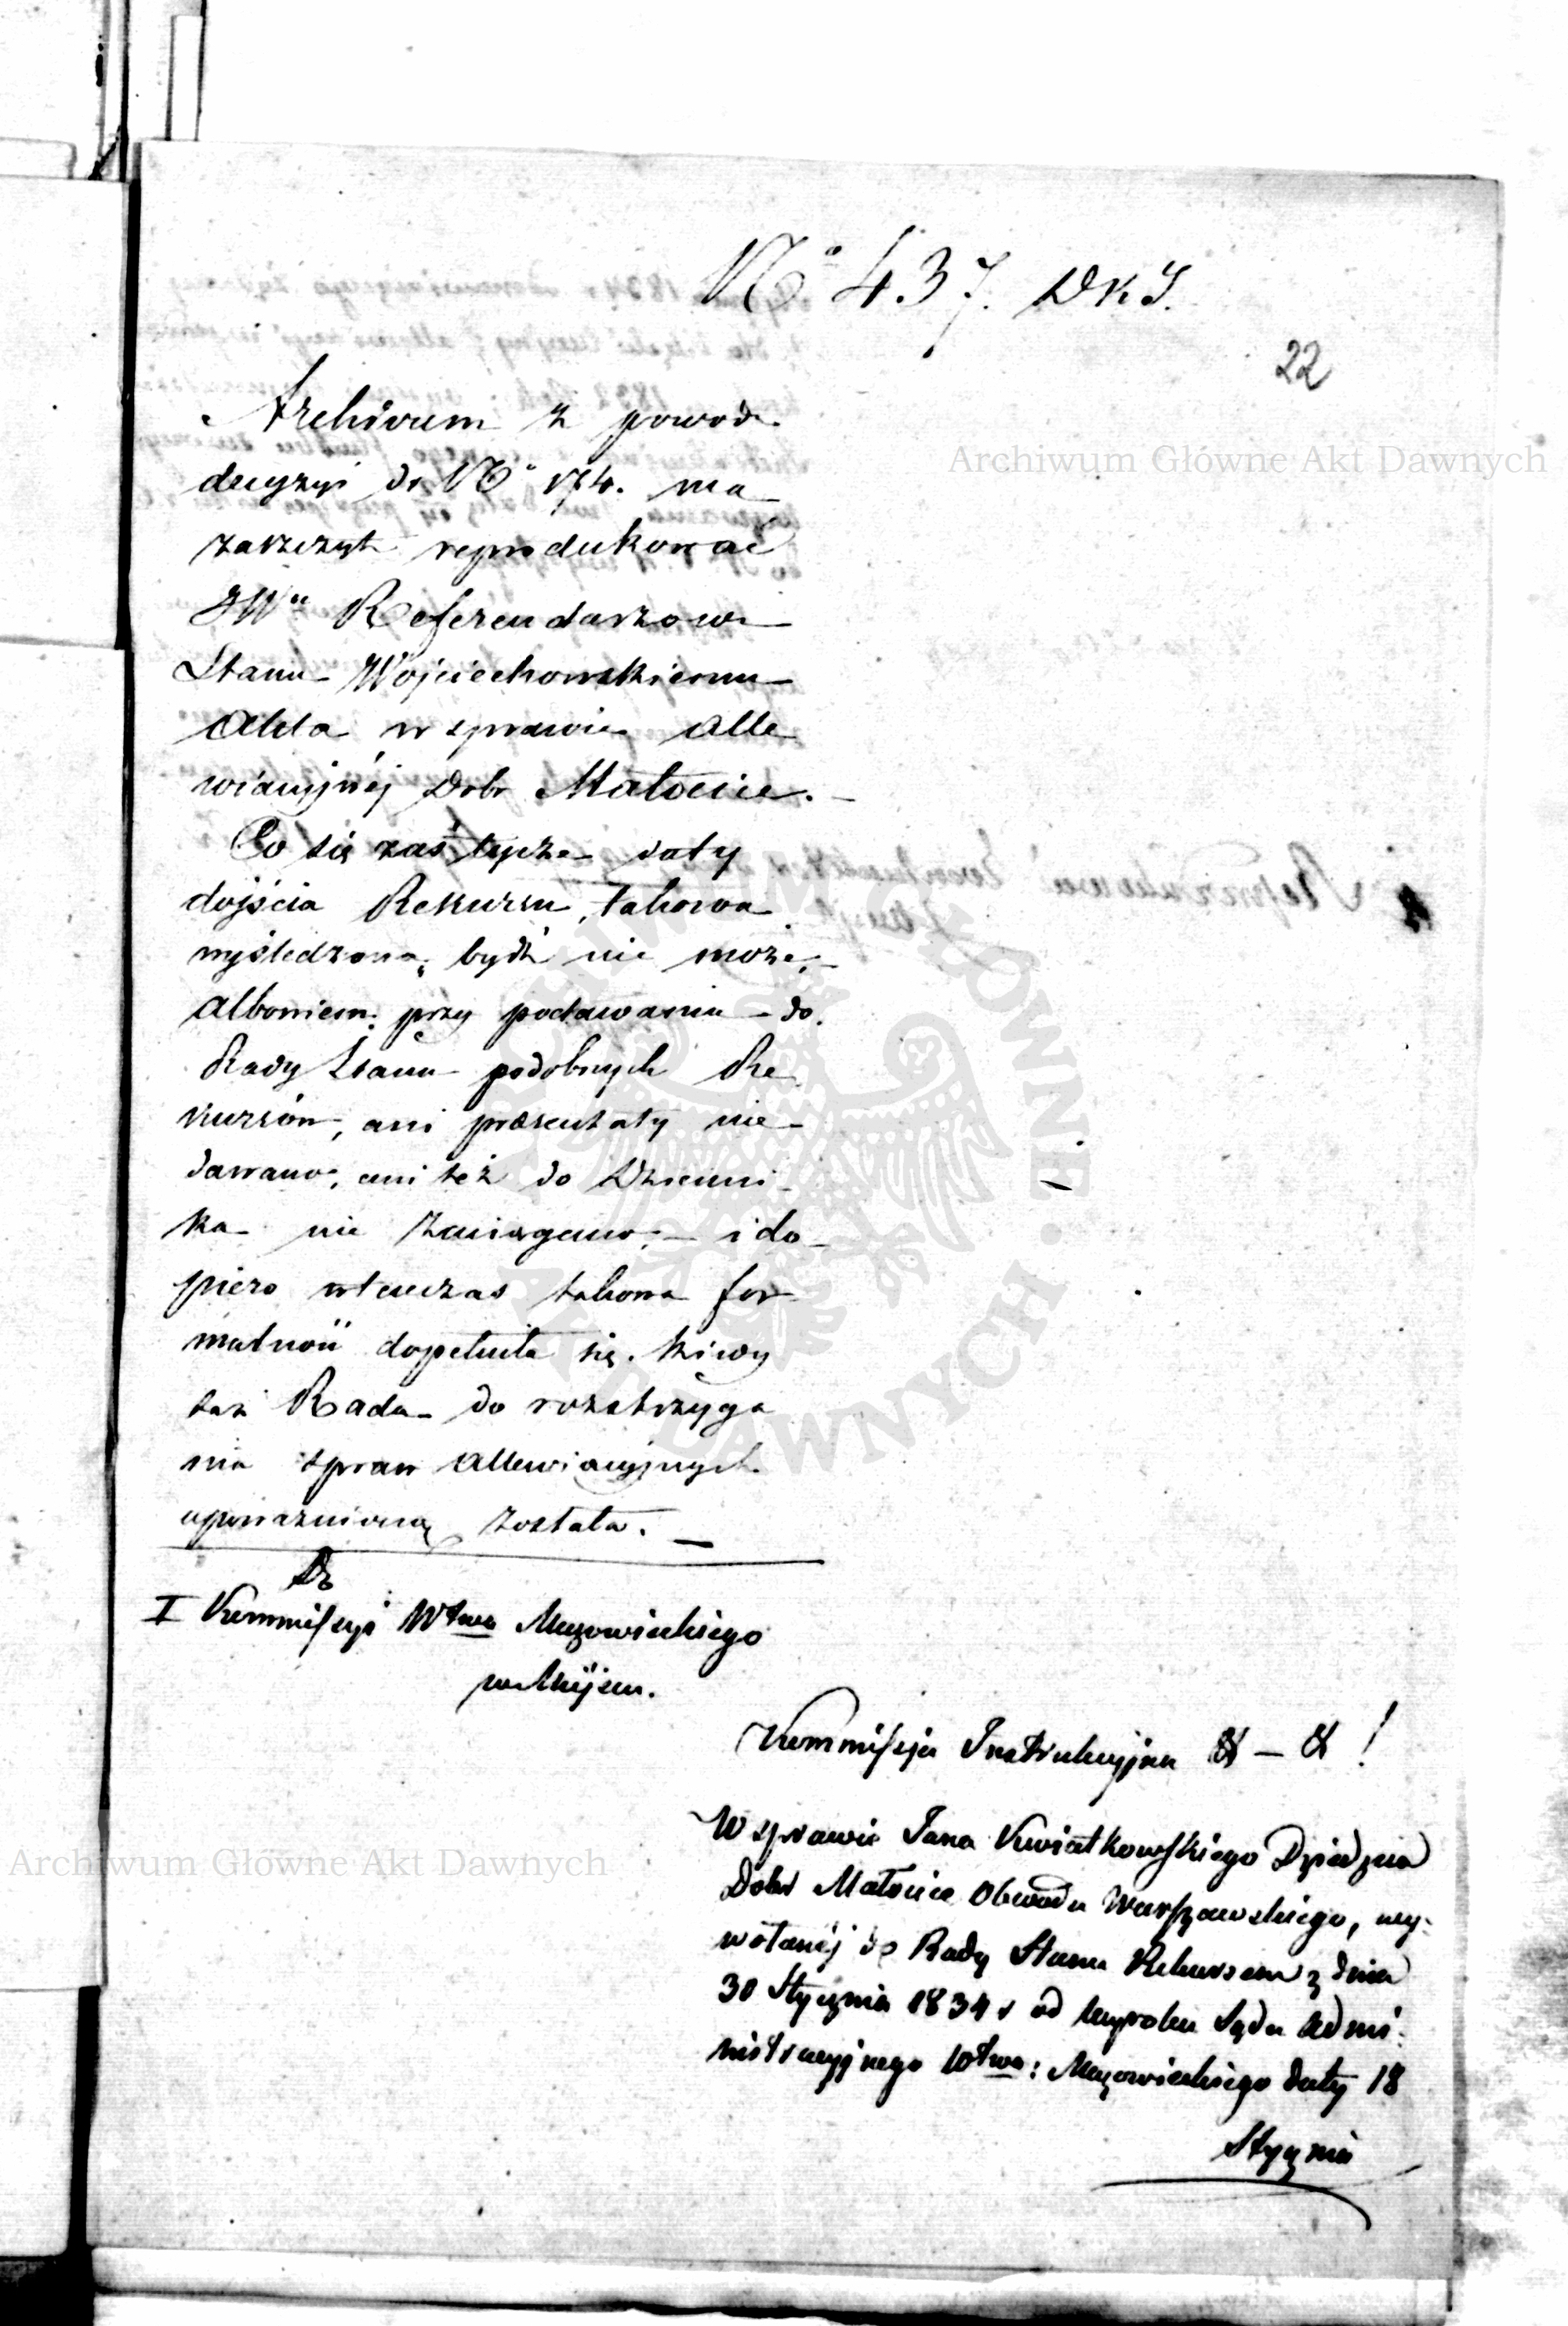 No 437. DKJ.
22
Archiwum z powodu
decyzyi do No 174. ma
zaszczyt reprodukować
JWu Referendarzowi
Stanu Wojciechowskiemu
Akta w sprawie Alle
wiacyjnéj Dobr Małocice.
Co się zaś tycze daty
dojścia Rekursu, takowa
wyśledzoną bydź nie może,
albowiem przy podawaniu do
Rady Stanu podobnych Re
kursów, ani præsentaty nie
dawano, ani też do Dzienni
ka nie zaciągano; – i do
piero wtenczas takowa for
malność dopełniła się, kiedy
taż Rada do rozstrzyga
nia spraw allewiacyjnych
upoważnioną została. –
Do
I Kommissyi Wtwa Mazowieckiego
w miejscu.
Kommissja Instrukcyjna & – & !
W sprawie Jana Kwiatkowskiego Dziedzica
Dobr Małocice Obwodu Warszawskiego, wy-
wołanéj do Rady Stanu Rekursem z dnia
30 Stycznia 1834 r od wyroku Sądu Admi-
nistracyjnego Wtwa: Mazowieckiego daty 18
Stycznia
Archiwum Główne Akt Dawnych
Archiwum Główne Akt Dawnych
ARCHIWUM GŁÓWNE AKT DAWNYCH